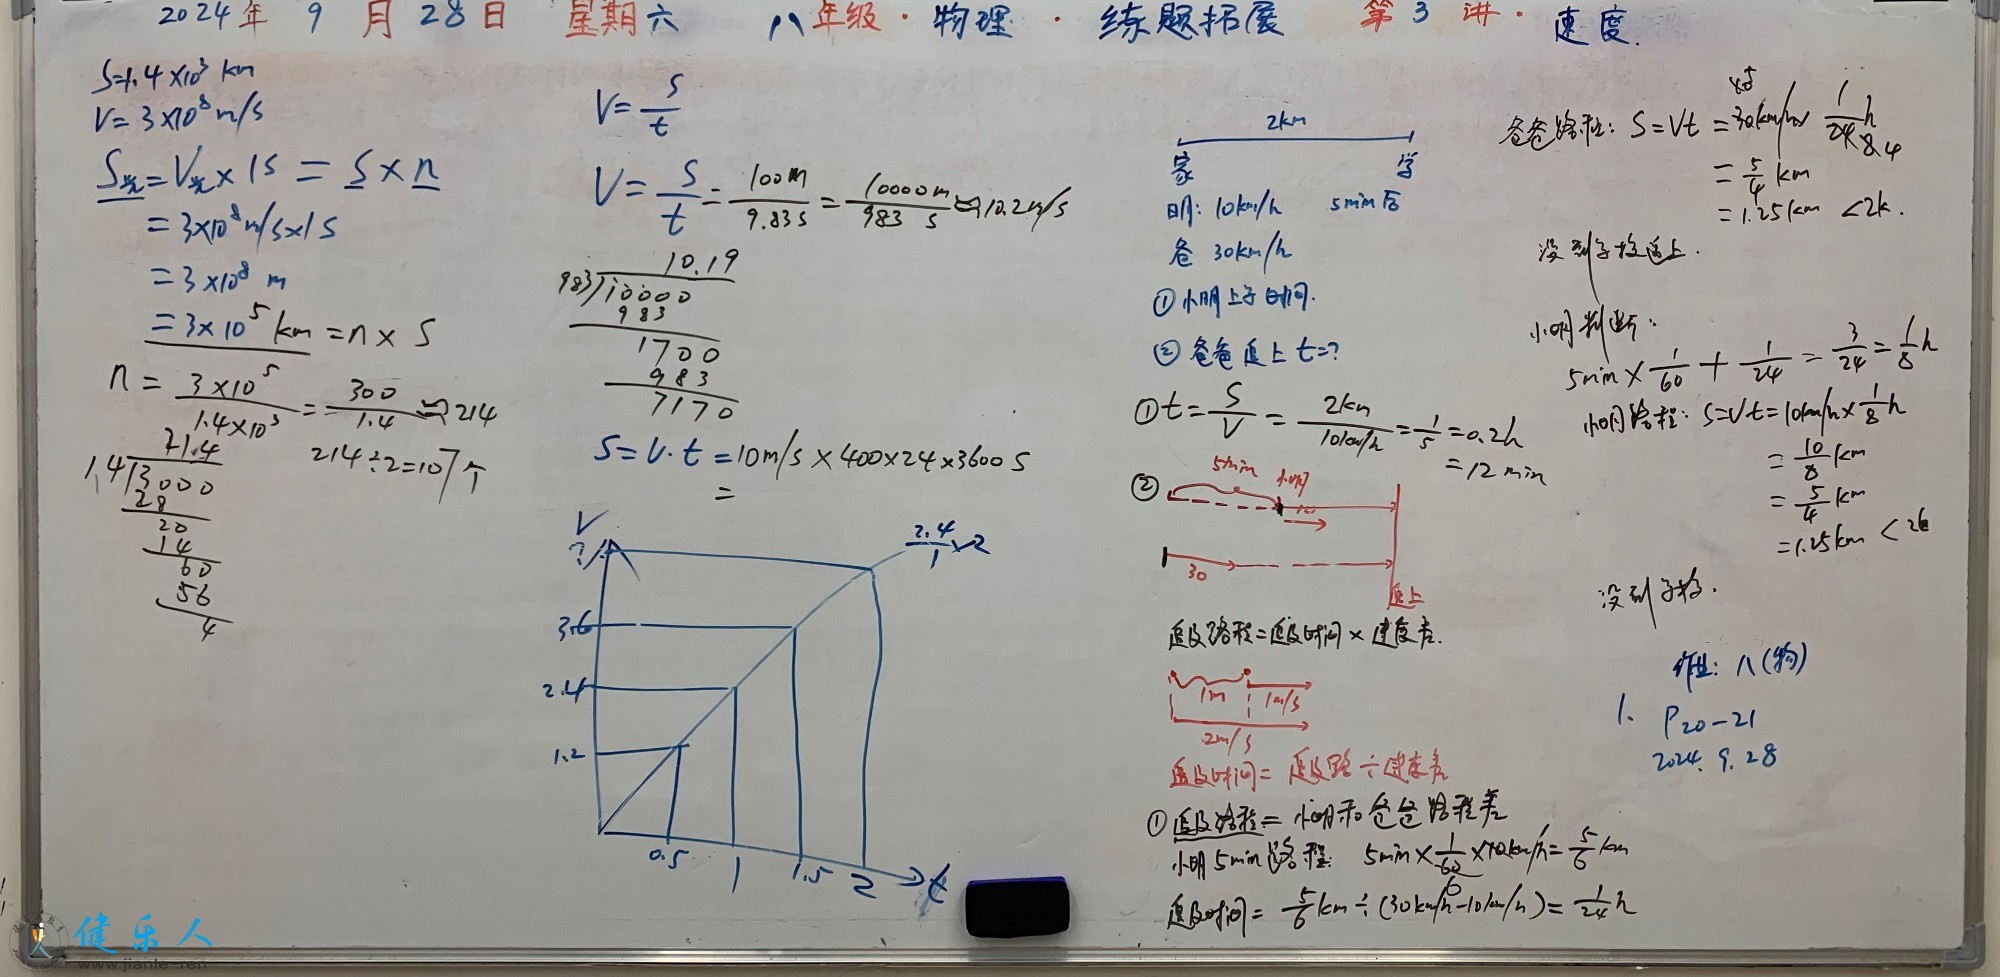 2024年 9月 28日 星期六 八年级·物理·练题拓展 第3讲·速度.
S=1.4×10³ km
V=3×10⁸ m/s
S光=V光×1s=S×n
=3×10⁸ m/s×1s
=3×10⁸ m
=3×10⁵ km=n×S
n=3×10⁵/1.4×10³=300/1.4≈214
214÷2=107个
1.4
3000
28
20
14
60
56
4
V=S/t
V=S/t=100m/9.83s=10000m/983s≈10.2m/s
10.19
983
10000
983
1700
983
7170
S=V·t=10m/s×400×24×3600s
=
V
?
3.6
2.4
1.2
0.5
1
1.5
2
t
2.4/1×2
2km
家 学
明:10km/h 5min后
爸 30km/h
①小明上学时间.
②爸爸追上t=?
①t=S/V=2km/10km/h=1/5=0.2h
=12min
②
5min 小明
10
30
追上
追及路程=追及时间×速度差.
1m 1m/s
2m/s
追及时间=追及路÷速度差
①追及路程=小明和爸爸路程差
小明5min路程: 5min×1/60×10km/h=5/6km
追及时间=5/6km÷(30km/h-10km/h)=1/24h
爸爸路程:S=Vt=30km/h×1/24h
=5/4km
=1.25km <2k.
没到学校追上.
小明判断:
5min×1/60+1/24=3/24=1/8h
小明路程:S=Vt=10km/h×1/8h
=10/8km
=5/4km
=1.25km <2k
没到学校.
作业:八(物)
1. P20-21
2024.9.28
健乐人
www.jianle.ren